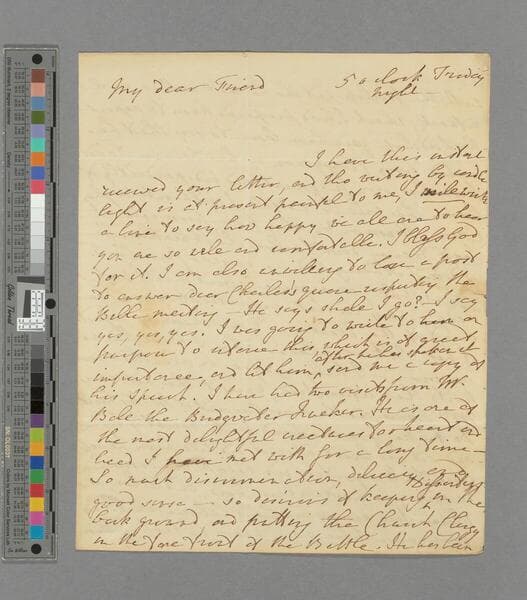 My dear Friend 5 o clock Friday
night -
I have this instant
received your letter, and tho writing by candle
light is at present painful to me, I will write
a line to say how happy we all are to hear
you are so well and comfortable. I bless God
for it. I am also unwilling to lose a post
to answer dear Charles's quere respecting the
Bible meeting - He says shall I go? - I say
yes, yes, yes. I was going to write to him on
purpose to this which is of great
importance, and let him after he has spoken it send me a copy of
his speech. I have had two visits from Mr.
the Bridgwater Quaker. He is one of
the most delightful creatures to heart and
head I have met with for a long time -
So much discrimination, delicacy and
good sense - so desirous of keeping Dissenters in the
back ground and putting the Church Clergy
in the fore front of the Battle. He has been